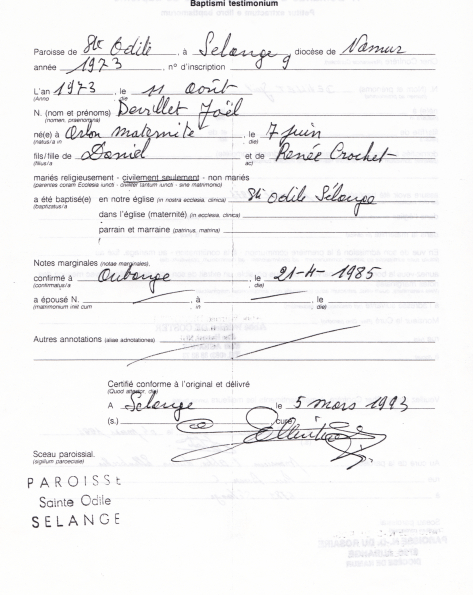 Baptismi testimonium
Paroisse de Ste Odile, à Selange, diocèse de Namur
année 1973, n° d'inscription 9
L'an 1973, le 11 août
(Anno die
N. (nom et prénoms) Devillet Joël
(nomen, praenomina)
né(e) à Arlon maternité, le 7 juin
(natus/a in die)
fils/fille de Daniel et de Renée Crochet
(filius/a ac)
mariés religieusement - civilement seulement - non mariés
(parentes coram Ecclesia iuncti - civiliter tantum iuncti - sine matrimonio)
a été baptisé(e) en notre église (in nostra ecclesia, clinica) Ste Odile Sélange
(baptizatus/a
dans l'église (maternité) (in ecclesia, clinica)
parrain et marraine (patrinus, matrina)
Notes marginales (notae marginales),
confirmé à Aubange, le 21-4-1985
(confirmatus/a die)
a épousé N., à, le
(matrimonium iniit cum in die)
Autres annotations (aliae adnotationes)
Certifié conforme à l'original et délivré
(Quod attestor, die)
A Selange le 5 mars 1993
(s.) curé
Sceau paroissial.
(sigillum paroeciale)
PAROISSE
Sainte Odile
SELANGE